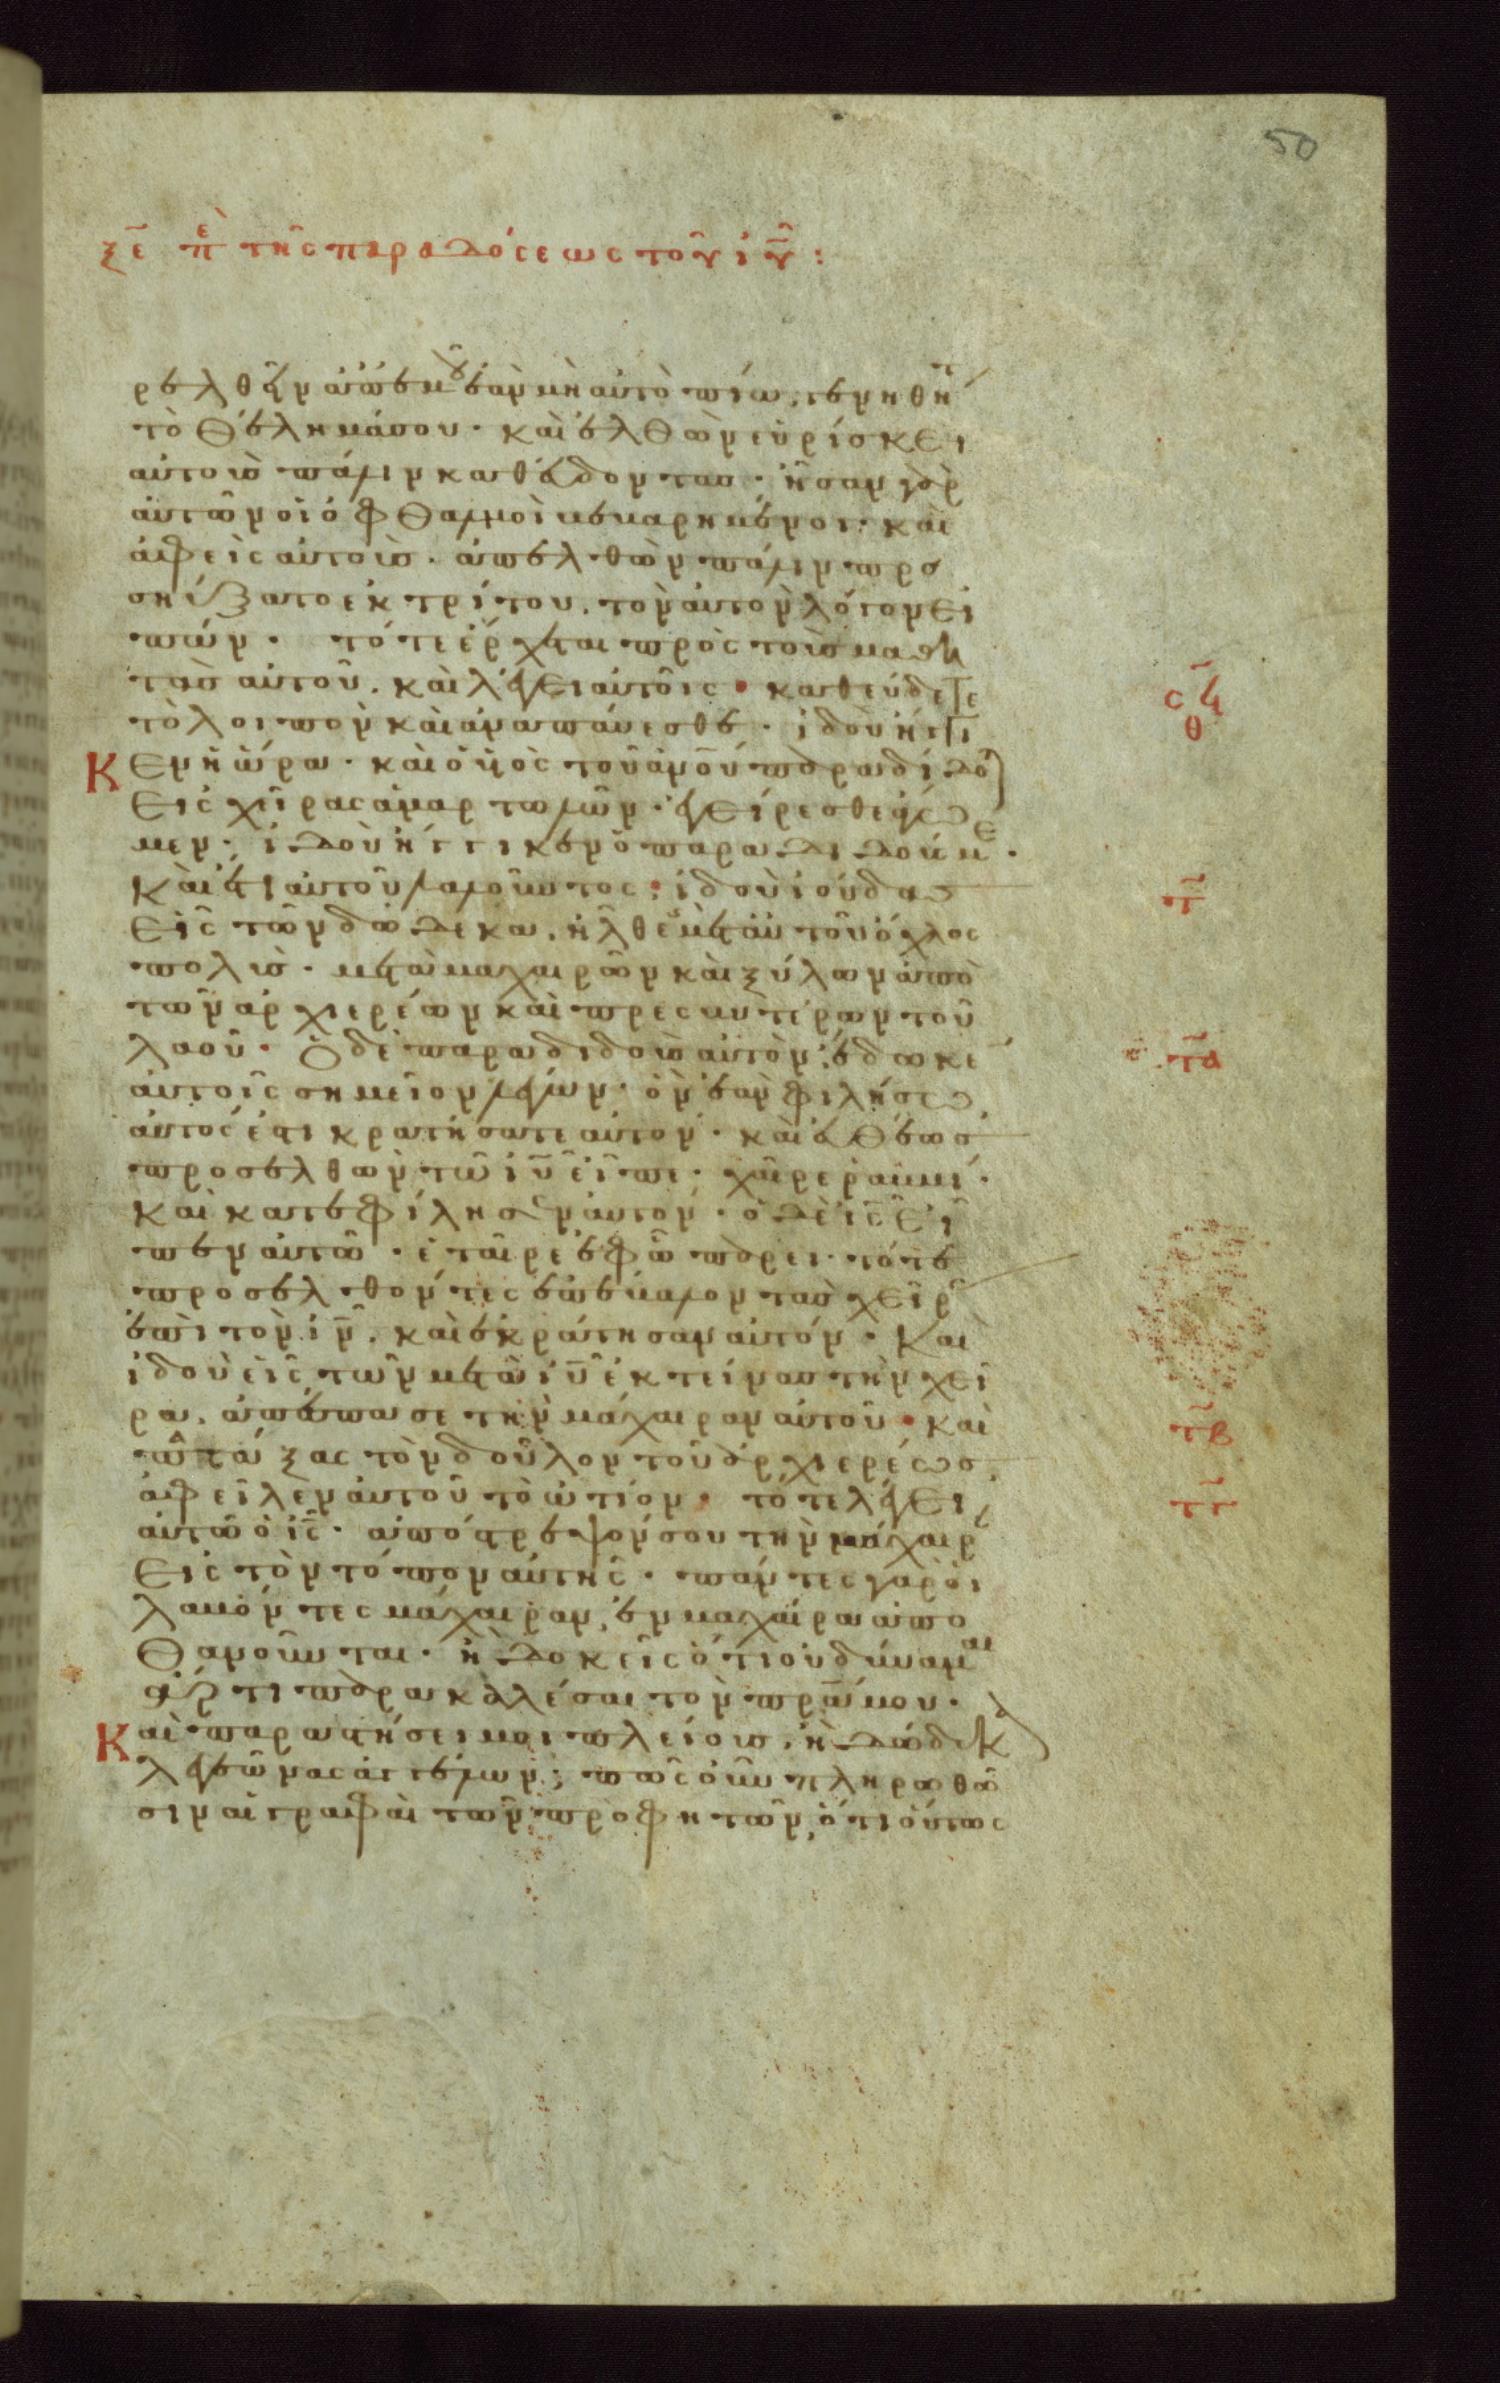 50
ξε πε της παραδόσεως τοῦ ιυ :
ρελθεῖν ἀπ' ἐμοῦ ἐὰν μὴ αὐτὸ πίω, γενηθήτ
τὸ θέλημά σου · καὶ ἐλθὼν εὑρίσκει
αὐτοὺς πάλιν καθεύδοντας · ἦσαν γὰρ
αὐτῶν οἱ ὀφθαλμοὶ βεβαρημένοι · καὶ
ἀφεὶς αὐτοὺς · ἀπελθὼν πάλιν προσ
ηύξατο ἐκ τρίτου, τὸν αὐτὸν λόγον εἰ
πών · τότε ἔρχεται πρὸς τοὺς μαθη
τὰς αὐτοῦ, καὶ λέγει αὐτοῖς · καθεύδετε
τὸ λοιπὸν καὶ ἀναπαύεσθε · ἰδοὺ ἤγγι
Κεν ἡ ὥρα · καὶ ὁ υἱὸς τοῦ ἀνου παραδίδο
εἰς χεῖρας ἁμαρτωλῶν · ἐγείρεσθε ἄγω
μεν · ἰδοὺ ἤγγικεν ὁ παραδιδούς με ·
Καὶ ἔτι αὐτοῦ λαλοῦντος · ἰδοὺ ἰούδας
εἷς τῶν δώδεκα, ἦλθε καὶ μετ' αὐτοῦ ὄχλος
πολὺς · μετὰ μαχαιρῶν καὶ ξύλων ἀπὸ
τῶν ἀρχιερέων καὶ πρεσβυτέρων τοῦ
λαοῦ · Ὁ δὲ παραδιδοὺς αὐτὸν, ἔδωκε
αὐτοῖς σημεῖον λέγων · ὃν ἐὰν φιλήσω,
αὐτός ἐστι κρατήσατε αὐτόν · καὶ εὐθέως
προσελθὼν τῷ ιυ εἶπε · χαῖρε ῥαββί ·
Καὶ κατεφίλησεν αὐτόν · ὁ δὲ ις εἶ
πεν αὐτῷ · ἑταῖρε ἐφ' ᾧ πάρει · τότε
προσελθόντες ἐπέβαλον τὰς χεῖρ
ἐπὶ τὸν ιν, καὶ ἐκράτησαν αὐτόν · Καὶ
ἰδοὺ εἷς τῶν μετὰ ιυ ἐκτείνας τὴν χεῖ
ρα, ἀπέσπασε τὴν μάχαιραν αὐτοῦ · καὶ
πατάξας τὸν δοῦλον τοῦ ἀρχιερέως,
ἀφεῖλεν αὐτοῦ τὸ ὠτίον · τότε λέγει
αὐτῷ ὁ ις · ἀπόστρεψόν σου τὴν μάχαιρ
εἰς τὸν τόπον αὐτῆς · πάντες γὰρ οἱ
λαβόντες μάχαιραν, ἐν μαχαίρα ἀπο
θανοῦνται · ἢ δοκεῖς ὅτι οὐ δύναμαι
ἄρτι παρακαλέσαι τὸν πρα μου ·
Καὶ παραστήσει μοι πλείους, ἢ δώδεκα
λεγεῶνας ἀγγέλων ; πῶς οὖν πληρωθῶ
σιν αἱ γραφαὶ τῶν προφητῶν, ὅτι οὕτως
σϟ
θ
τ
τα
τβ
τγ